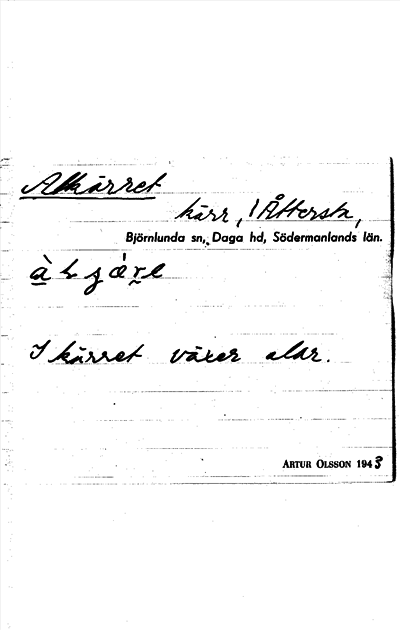 Alkärret
kärr, i Åttersta,
Björnlunda sn, Daga hd, Södermanlands län.
I kärret växer alar.
ARTUR OLSSON 1943